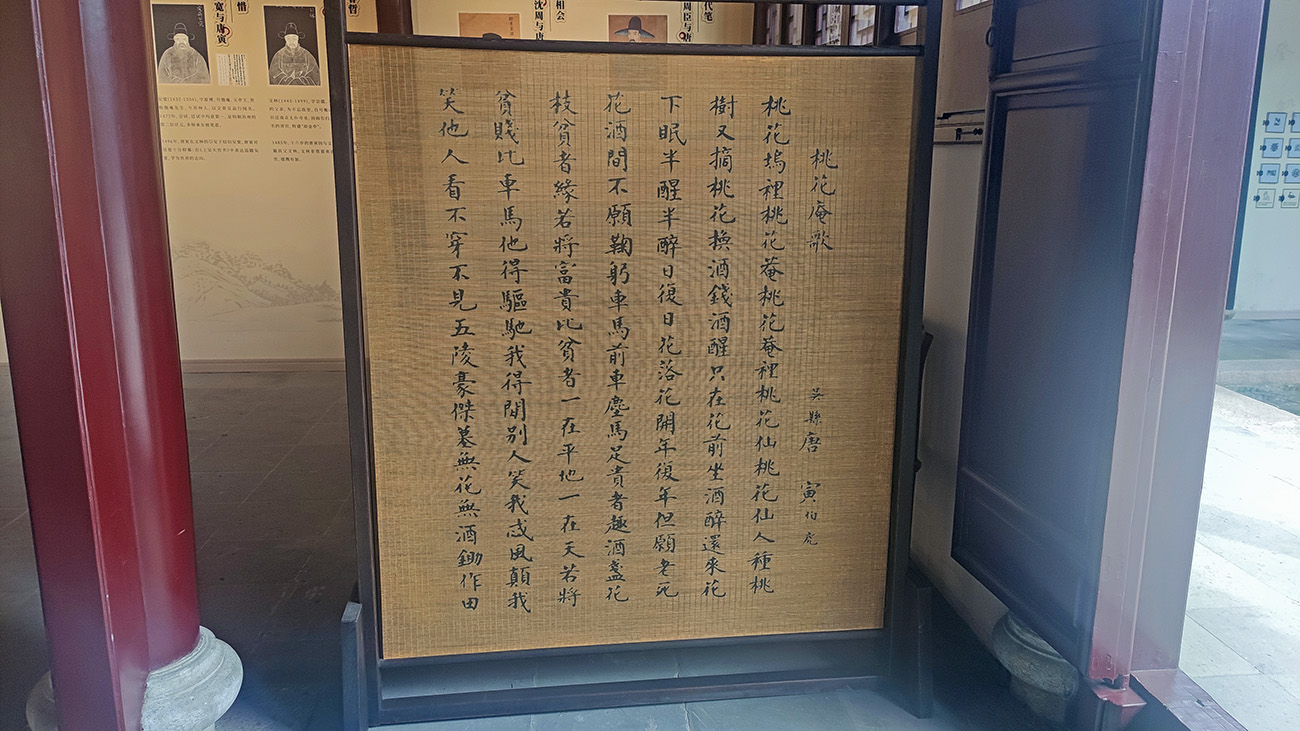 桃花庵歌
吳縣唐寅伯虎
桃花塢裡桃花菴桃花菴裡桃花仙桃花仙人種桃
樹又摘桃花換酒錢酒醒只在花前坐酒醉還來花
下眠半醒半醉日復日花落花開年復年但願老死
花酒間不願鞠躬車馬前車塵馬足貴者趣酒盞花
枝貧者緣若將富貴比貧者一在平地一在天若將
貧賤比車馬他得驅馳我得閒別人笑我忒風顛我
笑他人看不穿不見五陵豪傑墓無花無酒鋤作田
代笔
周臣与唐
相会
沈周与唐
惜
宽与唐寅